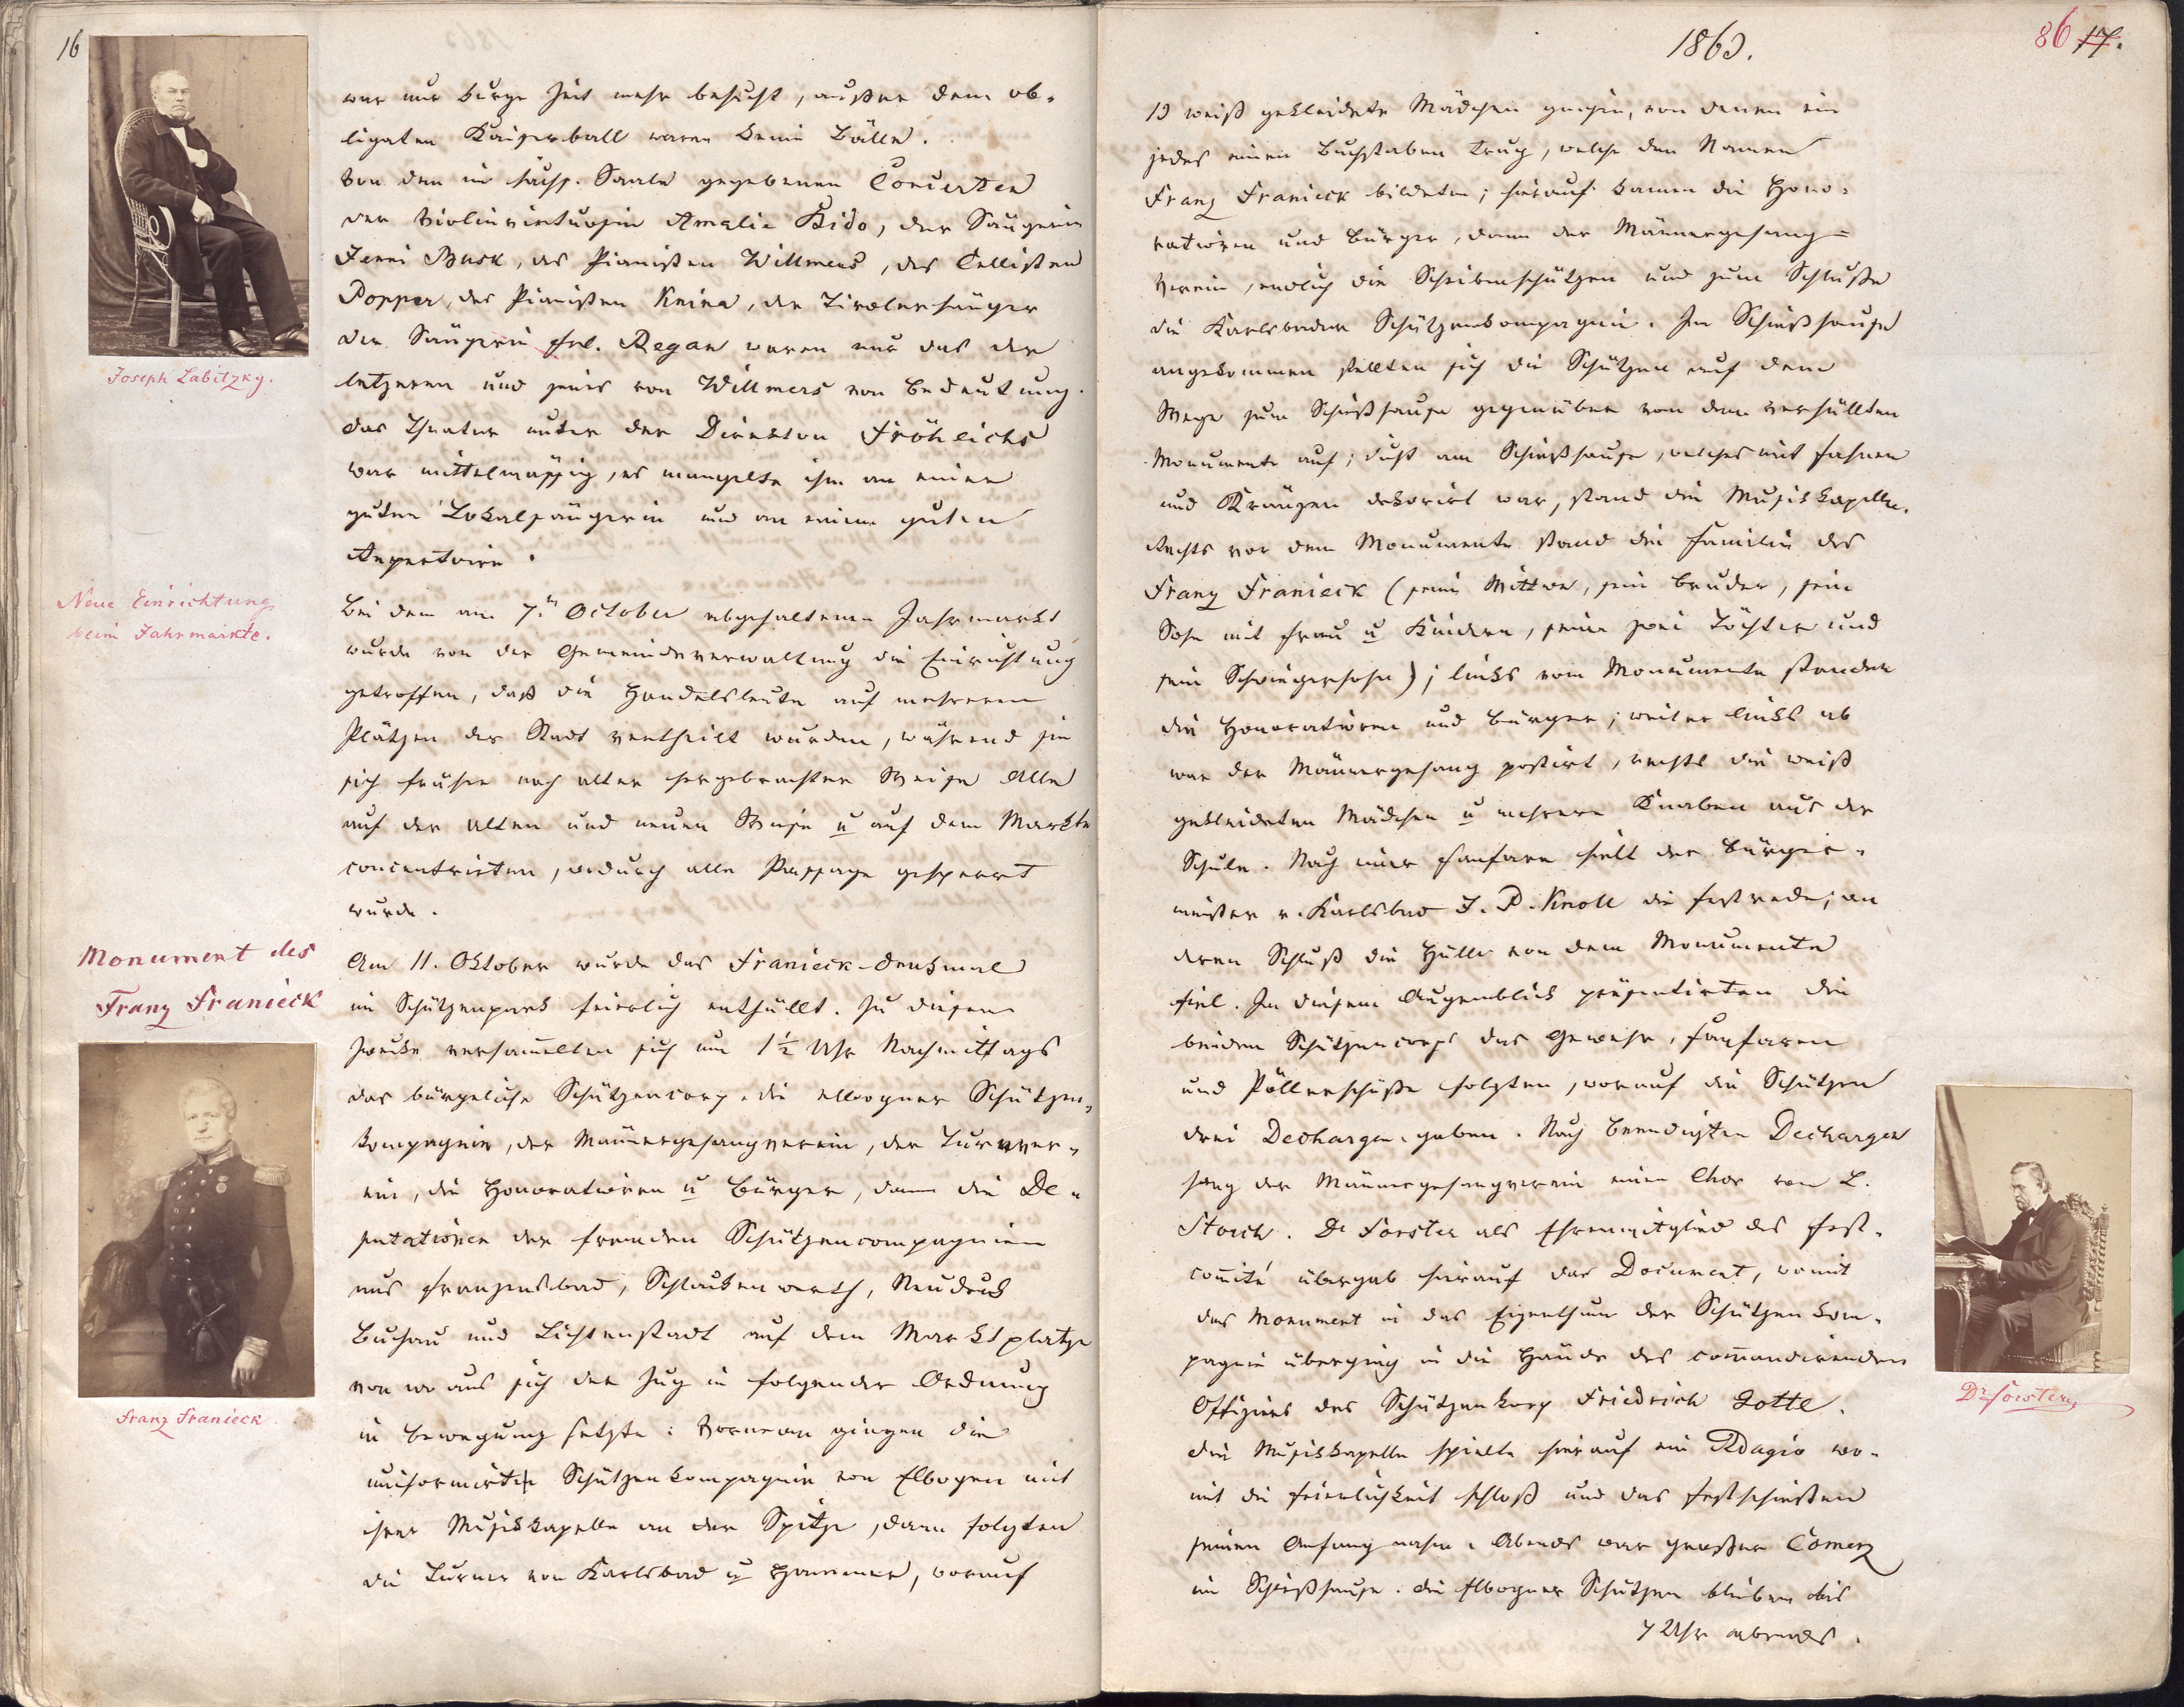 16
war nur kurze Zeit mehr besucht, außer dem ob-
ligaten Kaiserball waren keine Bälle.
Von den im sächs. Saale gegebenen Concerten
der Violinvirtuosin Amalie Bido, der Sängerin
Jenni Busk, des Pianisten Willmers, des Cellisten
Popper, des Pianisten Knina, der Tirolersänger
der Sängerin Frl. Regan waren nur das der
letzteren und jenes von Willmers von Bedeutung.
Das Theater unter der Direktion Fröhlichs
war mittelmässig, es mangelte ihm an einer
guten Lokalsängerin und an einem guten
Repertoire.
Joseph Labitzky.
Neue Einrichtung
beim Jahrmarkte.
Bei dem am 7.ten October abgehaltenen Jahrmarkt
wurde von der Gemeindeverwaltung die Einrichtung
getroffen, daß die Handelsleute auf mehreren
Plätzen der Stadt vertheilt wurden, während sie
sich früher nach alter hergebrachter Weise Alle
auf der alten und neuen Wiese u auf dem Markte
concentrirten, wodurch alle Passage gesperrt
wurde.
Monument des
Franz Franieck
Am 11. Oktober wurde das Franieck-Denkmal
im Schützenpark feierlich enthüllt. Zu diesem
Zwecke versam̄elten sich um 1½ Uhr Nachmittags
das bürgeliche Schützencorp. die ellbogner Schützen-
kompagnie, der Männergesangverein, der Turnver-
ein, die Honoratioren u Bürger, dann die De-
putationen der fremden Schützencompagnien
aus Franzensbad, Schlackenwerth, Neudeck
Buchau und Lichtenstadt auf dem Marktplatze
von wo aus sich der Zug in folgender Ordnung
in Bewegung setzte: Vornean gingen die
uniformirte Schützenkompagnie von Elbogen mit
ihrer Musikkapelle an der Spitze, dann folgten
die Turner von Karlsbad u Hammer, worauf
Franz Franieck
1863.
86 17.
13 weiß gekleidete Mädchen gingen, von denen ein
jedes einen Buchstaben trug, welche den Namen
Franz Franieck bildeten; hierauf kamen die Hono-
ratioren und Bürger, dann der Männergesang=
Verein, endlich die Scheibenschützen und zum Schluße
die Karlsbader Schützenkompagnie. Im Schießhause
angekommen stellten sich die Schützen auf dem
Wege zum Schießhause gegenüber von dem verhüllten
Monumente auf; dicht am Schießhause, welches mit Fahnen
und Kränzen dekorirt war, stand die Musikkapelle.
Rechts vor dem Monumente stand die Familie des
Franz Franieck (seine Wittwe, sein Bruder, sein
Sohn mit Frau u Kindern, seine zwei Töchter und
sein Schwiegersohn); links vom Monumente standen
die Honoratioren und Bürger; weiter links ab
war der Männergesang postirt, rechts die weiß
gekleideten Mädchen u mehrere Knaben aus der
Schule. Nach einer Fanfare hielt der Bürger-
meister v. Karlsbad J. P. Knoll die Festrede; an
deren Schluß die Hülle von dem Monumente
fiel. In diesem Augenblick präsentirten die
beiden Schützencorps das Gewehr, Fanfaren
und Pöllerschüße folgten, worauf die Schützen
drei Dechargen gaben. Nach beendigten Dechargen
sang der Männergesangverein einen Chor von L.
Storch. Dr Forster als Ehrenmitglied des Fest-
com̄ité übergab hierauf das Document, womit
das Monument in das Eigenthum der Schützenkom-
pagnie überging in die Hände des com̄andirenden
Offiziers des Schützenkorp Friedrich Gottl.
Die Musikkapelle spielte hierauf ein Adagio wo-
mit die Feierlichkeit schloß und das Festschießen
seinen Anfang nahm. Abends war großer Com̄erz
im Schießhause. Die Elbogner Schützen blieben bis
7 Uhr abends.
Dr Forster